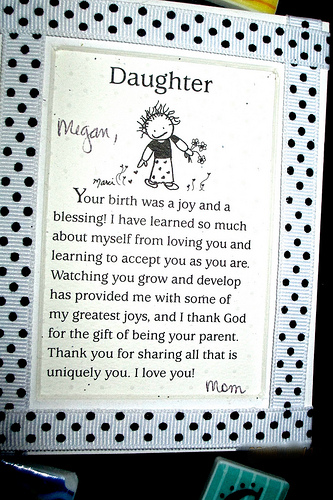 Daughter
Megan,
Marci
Your birth was a joy and a
blessing! I have learned so much
about myself from loving you and
learning to accept you as you are.
Watching you grow and develop
has provided me with some of
my greatest joys, and I thank God
for the gift of being your parent.
Thank you for sharing all that is
uniquely you. I love you!
Mom